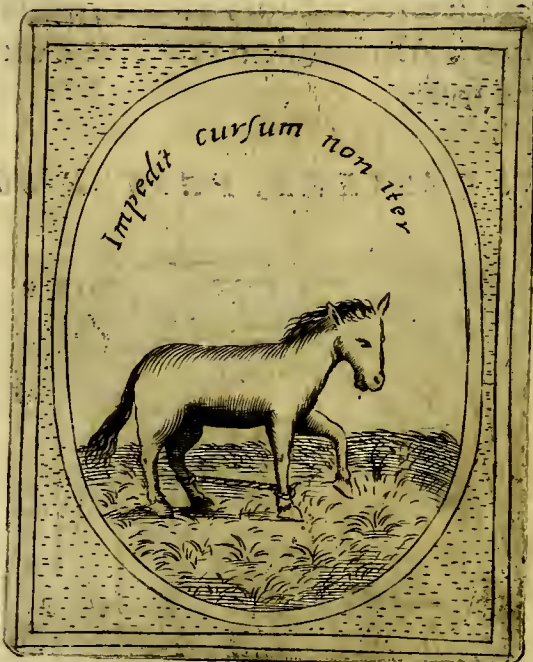 Impedit curſum non iter